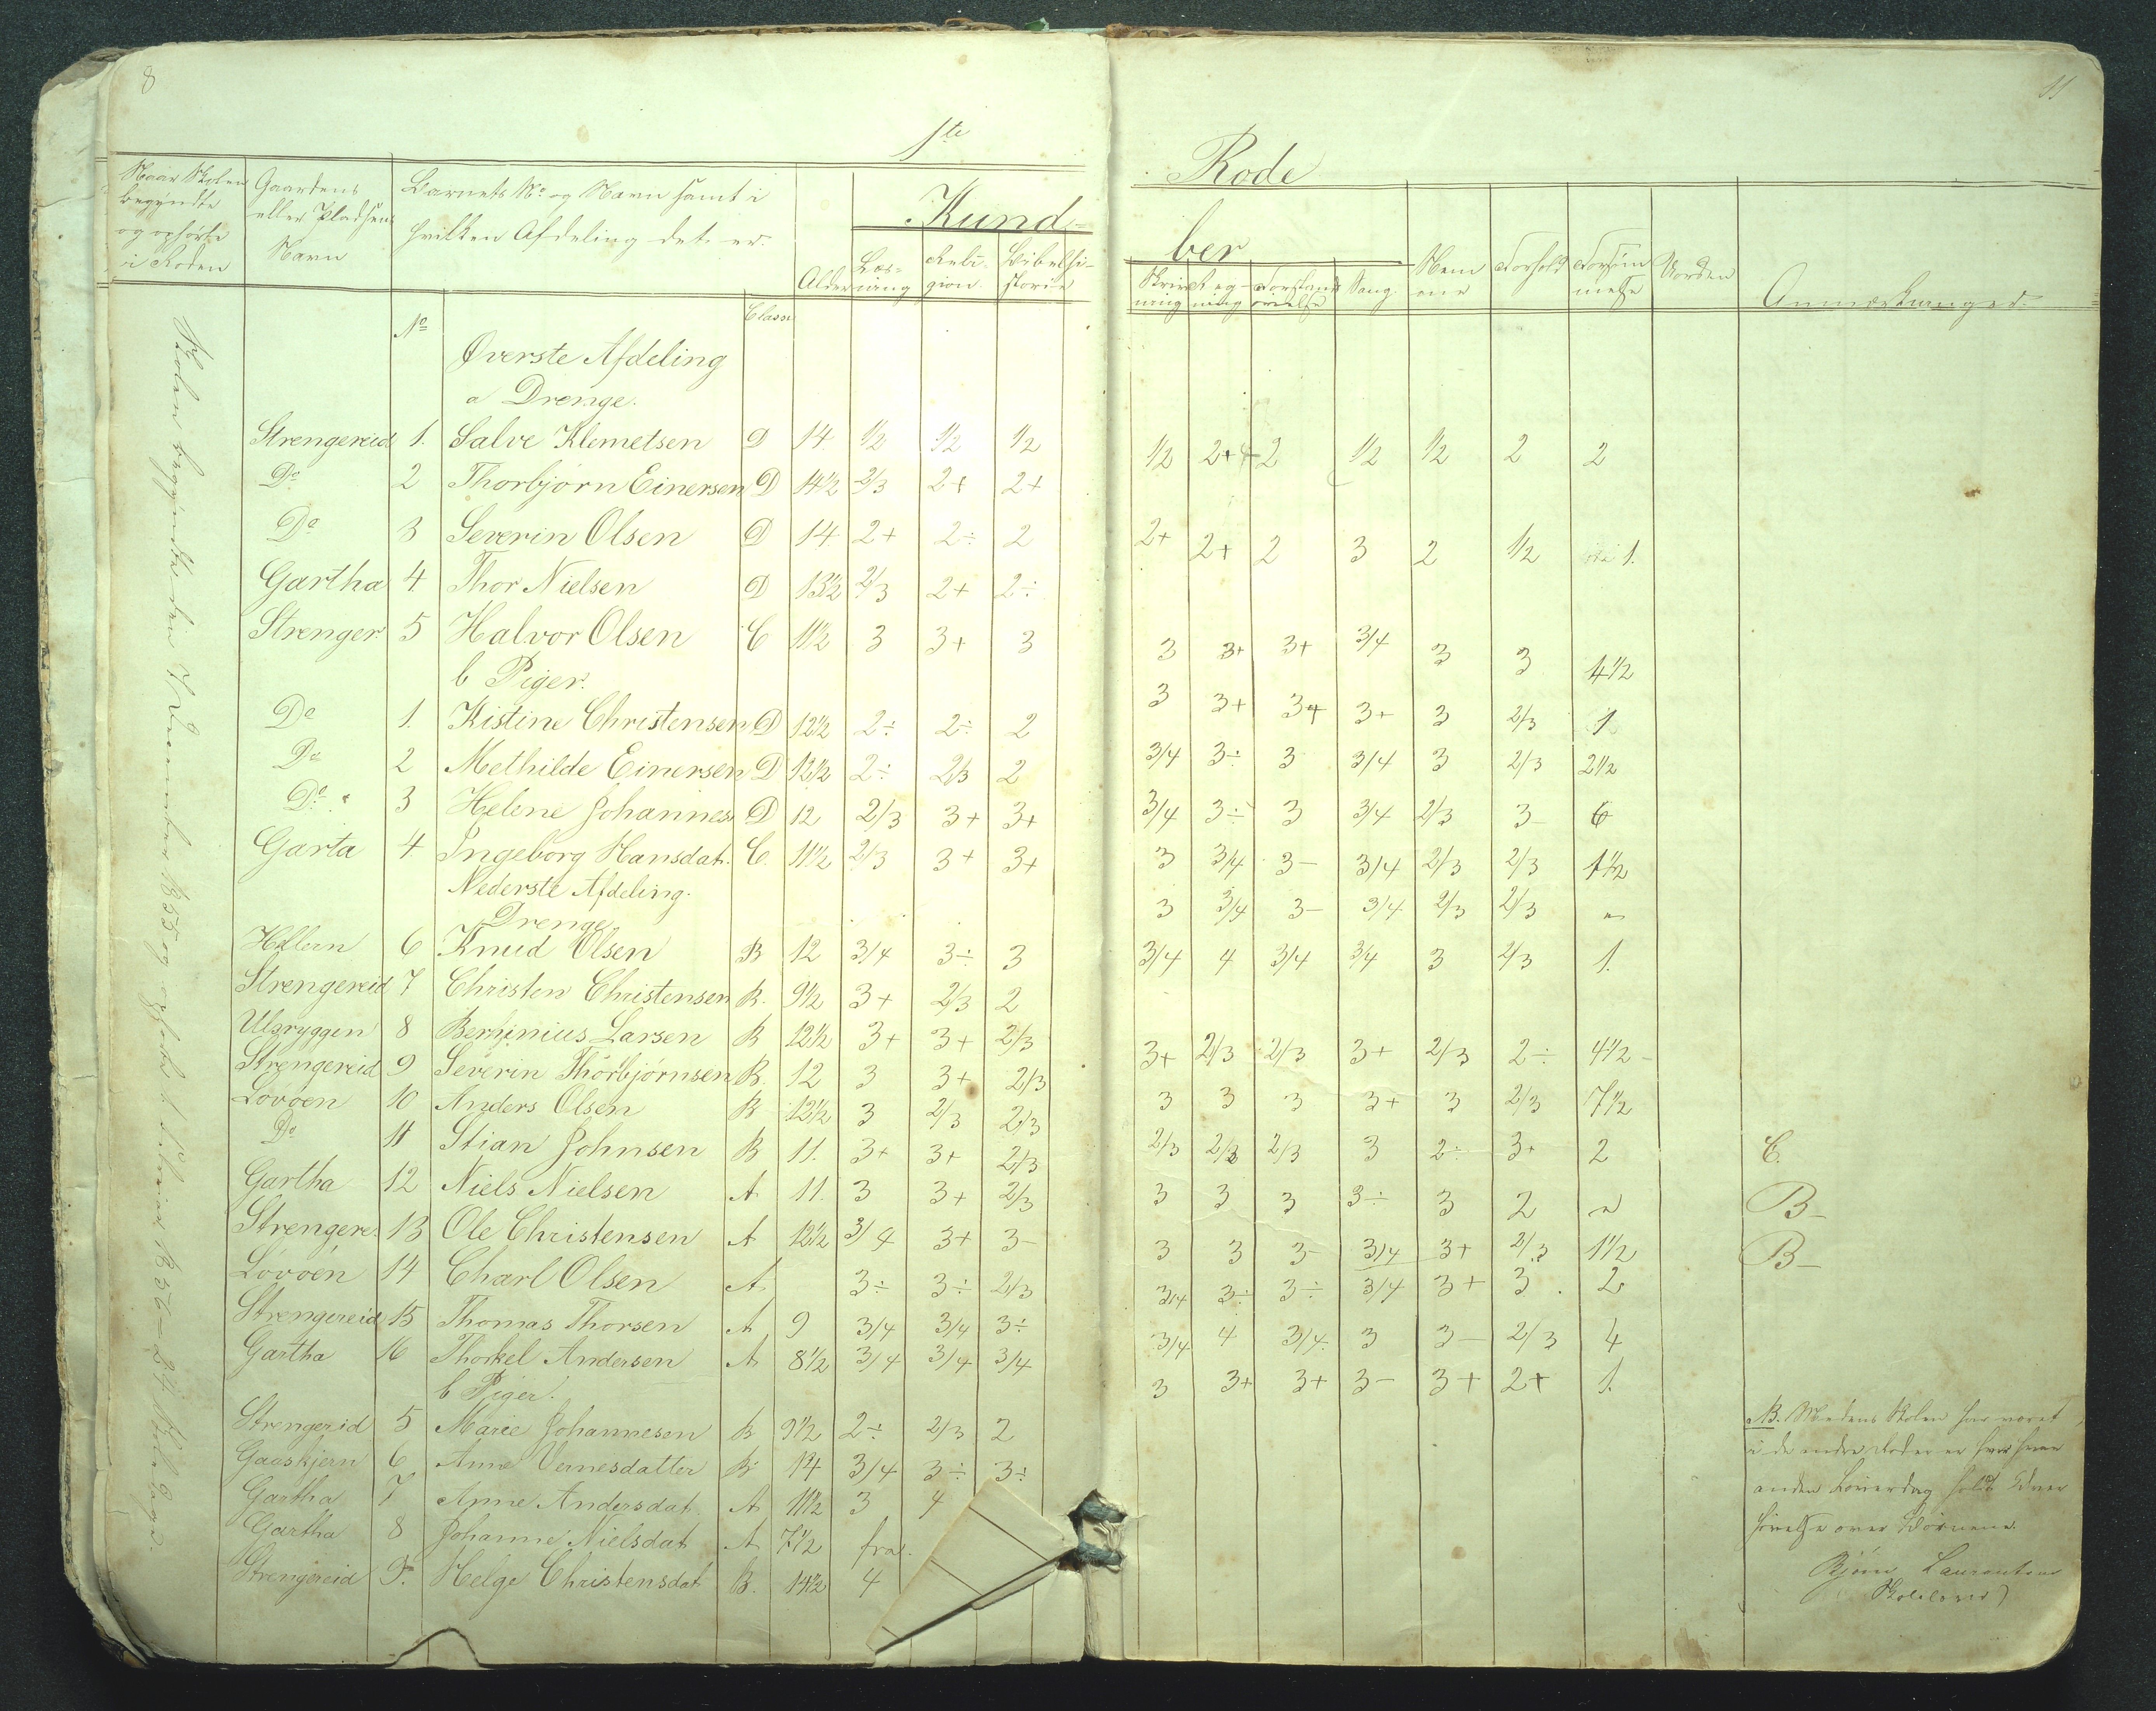 8
11
1te Rode
Naar Skolen begyndte og ophørte i Roden
Gaardens eller Pladsens Navn
Barnets No og Navn samt i hvilken Afdeling det er.
Alder
Kundskaber
Læsning Religion Bibelhistorie
Skrivning Regning Forstandsøvelse Sang
Nemme Forhold Forsømmelse Uorden Anmærkninger
No Classe
Øverste Afdeling
a Drenge.
Strengereid 1. Salve Klemetsen D 14 1/2 1/2 1/2
Do 2 Thorbjørn Einersen D 14 1/2 2/3 2+ 2+
Do 3 Severin Olsen D 14 2+ 2÷ 2
Gartha 4 Thor Nielsen D 13 1/2 2/3 2+ 2÷
Strenger 5 Halvor Olsen C 11 1/2 3 3+ 3
b Piger.
Do 1. Kistine Christensen D 12 1/2 2÷ 2÷ 2
Do 2 Methilde Einersen D 12 1/2 2÷ 2/3 2
Do 3 Helene Johannes D 12 2/3 3+ 3+
Garta 4 Ingeborg Hansdat. C. 11 1/2 2/3 3+ 3+
Nederste Afdeling.
Drenge
Hellern 6 Knud Olsen B 12 3/4 3÷ 3
Strengereid 7 Christen Christensen B. 9 1/2 3+ 2/3 2
Ulsryggen 8 Larsen B 12 1/2 3+ 3+ 2/3
Strengereid 9 Severin Thorbjørnsen B. 12 3 3+ 2/3
Løvøen 10 Anders Olsen B 12 1/2 3 2/3 2/3
Do 11 Stian Johnsen B 11. 3+ 3+ 2/3
Gartha 12 Niels Nielsen A 11. 3 3+ 2/3
Strengere. 13 Ole Christensen A 12 1/2 3/4 3+ 3-
Løvøen 14 Charl Olsen A. 3÷ 3÷ 2/3
Strengereid 15 Thomas Thorsen A 9 3/4 3/4 3÷
Gartha 16 Thorkel Andersen A 8 1/2 3/4 3/4 3/4
b Piger.
Strengereid 5 Marie Johannesen B 9 1/2 2÷ 2/3 2
Gaaskjern 6 Anne Vernesdatter B 14 3/4 3÷ 3÷
Gartha 7 Anne Andersdat. A 11 1/2 3 4
Gartha 8 Johanne Nielsdat A 7 1/2 fra.
Strengereid 9. Helge Christensdat B. 14 1/2 4
1/2 2+ 2 1/2 1/2 2 2
2+ 2+ 2 3 2 1/2 1.
3 3+ 3+ 3/4 3 3 4 1/2
3 3+ 3+ 3+ 3 2/3 1
3/4 3÷ 3 3/4 3 2/3 2 1/2
3/4 3÷ 3 3/4 2/3 3- 6
3 3/4 3- 3/4 2/3 2/3 1 1/2
3 3/4 3- 3/4 2/3 2/3 "
3/4 4 3/4 3/4 3 2/3 1.
3+ 2/3 2/3 3+ 2/3 2÷ 4 1/2 -
3 3 3 3+ 3 2/3 7 1/2
2/3 2/3 2/3 3 2÷ 3+ 2 C.
3 3 3 3÷ 3 2 " B-
3 3 3- 3/4 3+ 2/3 1 1/2 B-
3/4 3÷ 3÷ 3/4 3+ 3. 2
3/4 4 3/4 3 3- 2/3 4
3 3+ 3+ 3- 3+ 2+ 1.
NB. Medens Skolen har været
i de andre Roder er hver
anden Løverdag holdt
over Børnene.
Bjørn Laurentsen
Skolelærer)
Skolen begyndte den 7 December 1855 og